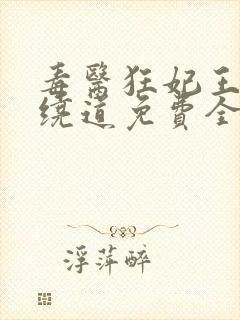 毒醫狂妃王
繞道免費全
浮萍醉